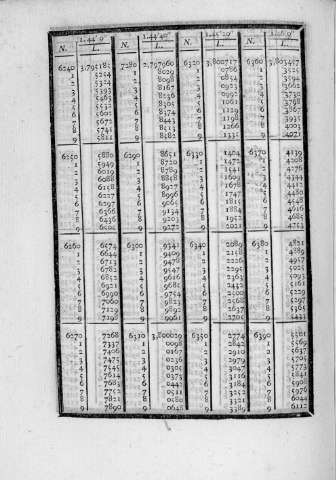 1.44'.0" 1.44'.40" 1.45'.20" 1.46'.0"
N. L. N. L. N. L. N. L.
6240 3,795185 7280 2,797960 6320 3,800717 6360 3,803457
1 5254 1 8029 1 0786 1 3525
2 5324 2 8098 2 0854 2 3594
3 5393 3 8167 3 0923 3 3662
4 5463 4 8236 4 0992 4 3730
5 5532 5 8305 5 1061 5 3798
6 5602 6 8374 6 1129 6 3867
7 5672 7 8443 7 1198 7 3935
8 5741 8 8513 8 1266 8 4003
9 5811 9 8582 9 1335 9 4071
6250 5880 6290 8651 6330 1404 6370 4139
1 5949 1 8720 1 1472 1 4208
2 6019 2 8789 2 1541 2 4276
3 6088 3 8858 3 1609 3 4344
4 6158 4 8927 4 1678 4 4412
5 6227 5 8996 5 1747 5 4480
6 6297 6 9065 6 1815 6 4548
7 6366 7 9134 7 1884 7 4616
8 6436 8 9203 8 1952 8 4685
9 6505 9 9272 9 2021 9 4753
6260 6574 6300 9341 6340 2089 6380 4821
1 6644 1 9409 1 2158 1 4889
2 6713 2 9478 2 2226 2 4957
3 6782 3 9547 3 2295 3 5025
4 6852 4 9616 4 2363 4 5093
5 6921 5 9685 5 2432 5 5161
6 6990 6 9754 6 2500 6 5229
7 7060 7 9823 7 2568 7 5297
8 7129 8 9892 8 2637 8 5365
9 7198 9 9961 9 2705 9 5433
6270 7268 6310 3,800029 6350 2774 6390 5501
1 7337 1 0098 1 2842 1 5569
2 7406 2 0167 2 2910 2 5637
3 7475 3 0236 3 2979 3 5705
4 7545 4 0305 4 3047 4 5773
5 7614 5 0373 5 3116 5 5841
6 7683 6 0442 6 3184 6 5908
7 7752 7 0511 7 3252 7 5976
8 7821 8 0580 8 3321 8 6044
9 7890 9 0648 9 3389 9 6112